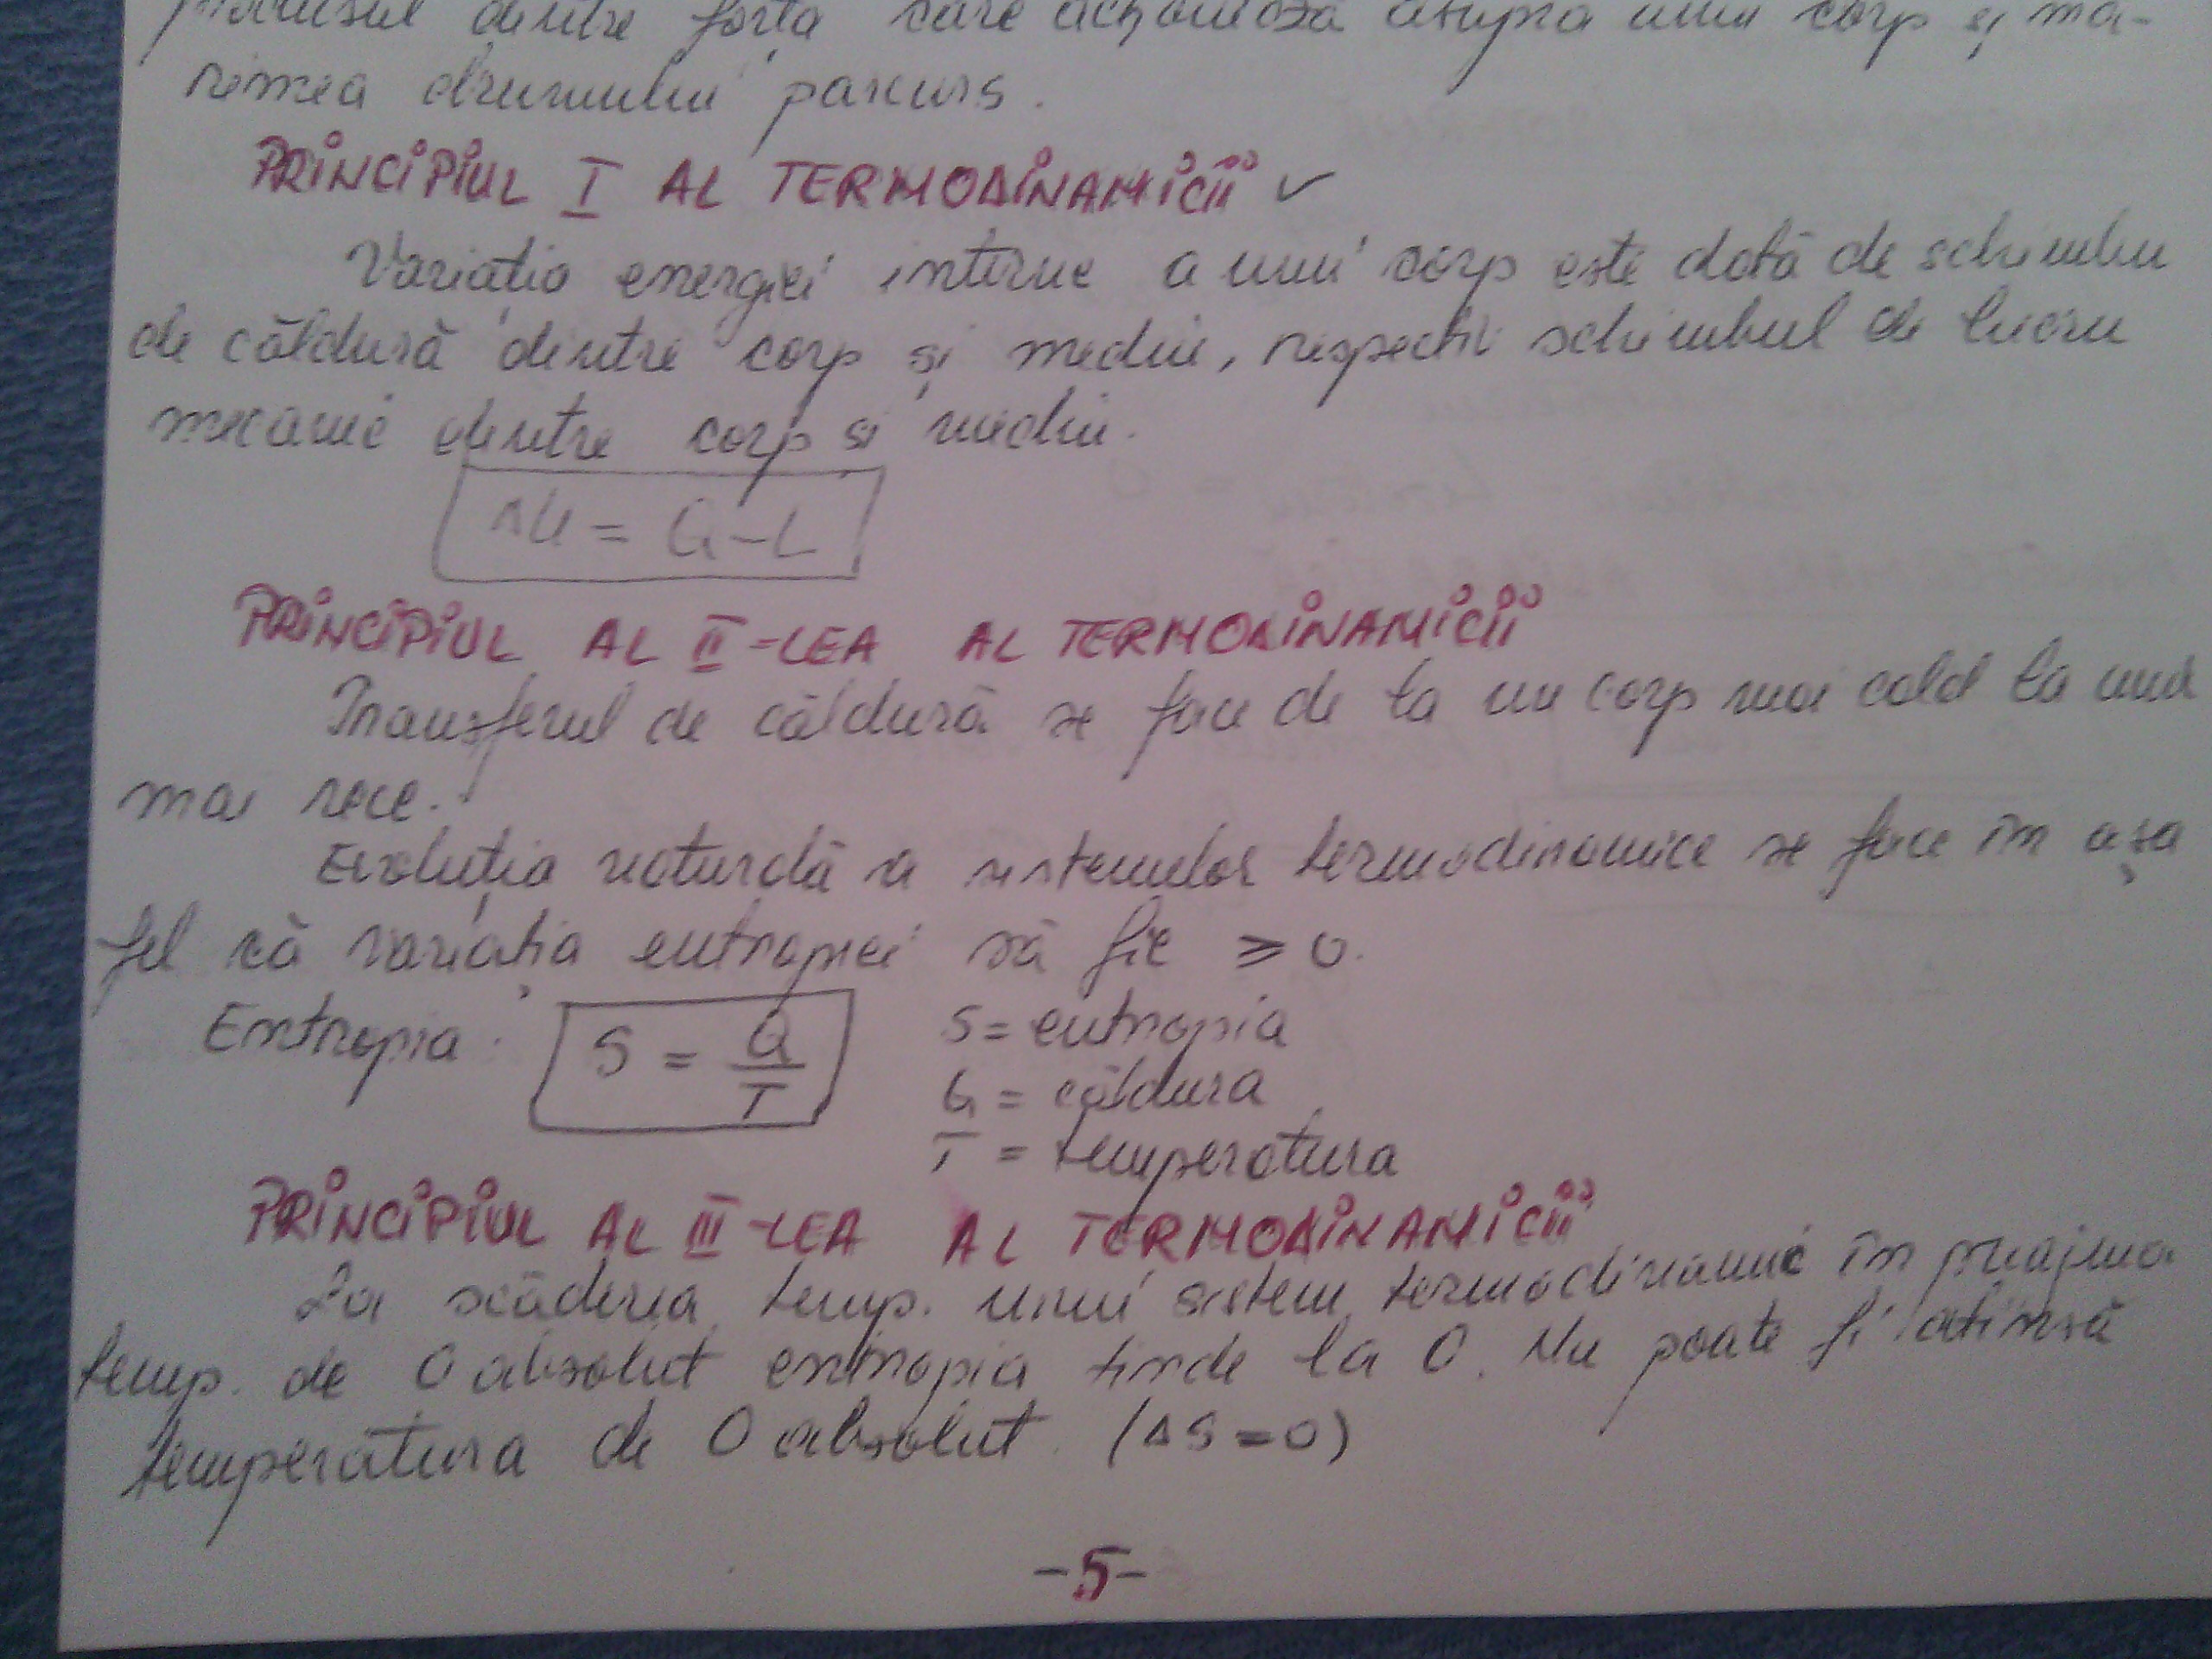 produsul dintre forța care acționează asupra unui corp și mă-
rimea drumului parcurs.
PRINCIPIUL I AL TERMODINAMICII ✓
Variația energiei interne a unui corp este dată de schimbu
de căldură dintre corp și mediu, respectiv schimbul de lucru
mecanic dintre corp si mediu.
ΔU = Q-L
PRINCIPIUL AL II-LEA AL TERMODINAMICII
Transferul de căldură se face de la un corp mai cald la unul
mai rece.
Evoluția naturală a sistemelor termodinamice se face în așa
fel că variația entropiei să fie ≥ 0.
Entropia: S = Q/T S = entropia
Q = căldura
T = temperatura
PRINCIPIUL AL III-LEA AL TERMODINAMICII
La scăderea temp. unui sistem termodinamic în preajma
temp. de 0 absolut entropia tinde la 0. Nu poate fi atinsă
temperatura de 0 absolut. (ΔS=0)
-5-